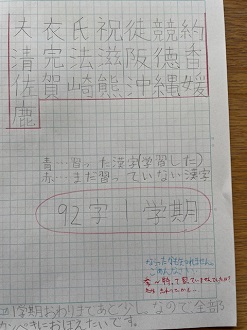 夫衣氏祝徒競約
清完法滋阪徳香
佐賀崎熊沖縄媛
鹿
青…習った漢字(学習した)
赤…まだ習っていない漢字
92字 1学期
なった
ごめんなさい
1学期おわりまであと少しなので、全部
かんぺきにおぼえたいです。